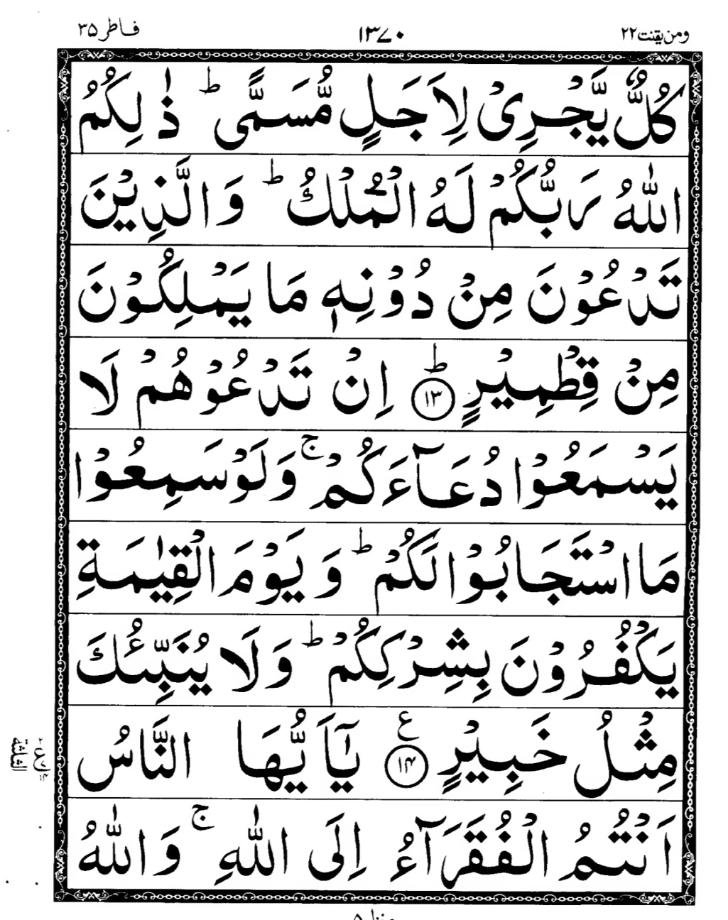 ومن یقنت ۲۲ ۱۳۷۰ فاطر ۳۵
كُلٌّ يَّجْرِىْ لِاَجَلٍ مُّسَمًّى ؕ ذٰ لِكُمُ
اللّٰهُ رَبُّكُمْ لَهُ الْمُلْكُ ؕ وَالَّذِيْنَ
تَدْعُوْنَ مِنْ دُوْنِهٖ مَا يَمْلِكُوْنَ
مِنْ قِطْمِيْرٍ ؕ ۱۳ اِنْ تَدْعُوْهُمْ لَا
يَسْمَعُوْا دُعَآءَكُمْ ۚ وَلَوْ سَمِعُوْا
مَا اسْتَجَابُوْا لَكُمْ ؕ وَيَوْمَ الْقِيٰمَةِ
يَكْفُرُوْنَ بِشِرْكِكُمْ ؕ وَلَا يُنَبِّئُكَ
مِثْلُ خَبِيْرٍ ع ۱۴ يٰۤاَيُّهَا النَّاسُ
اَنْتُمُ الْفُقَرَآءُ اِلَى اللّٰهِ ۚ وَاللّٰهُ